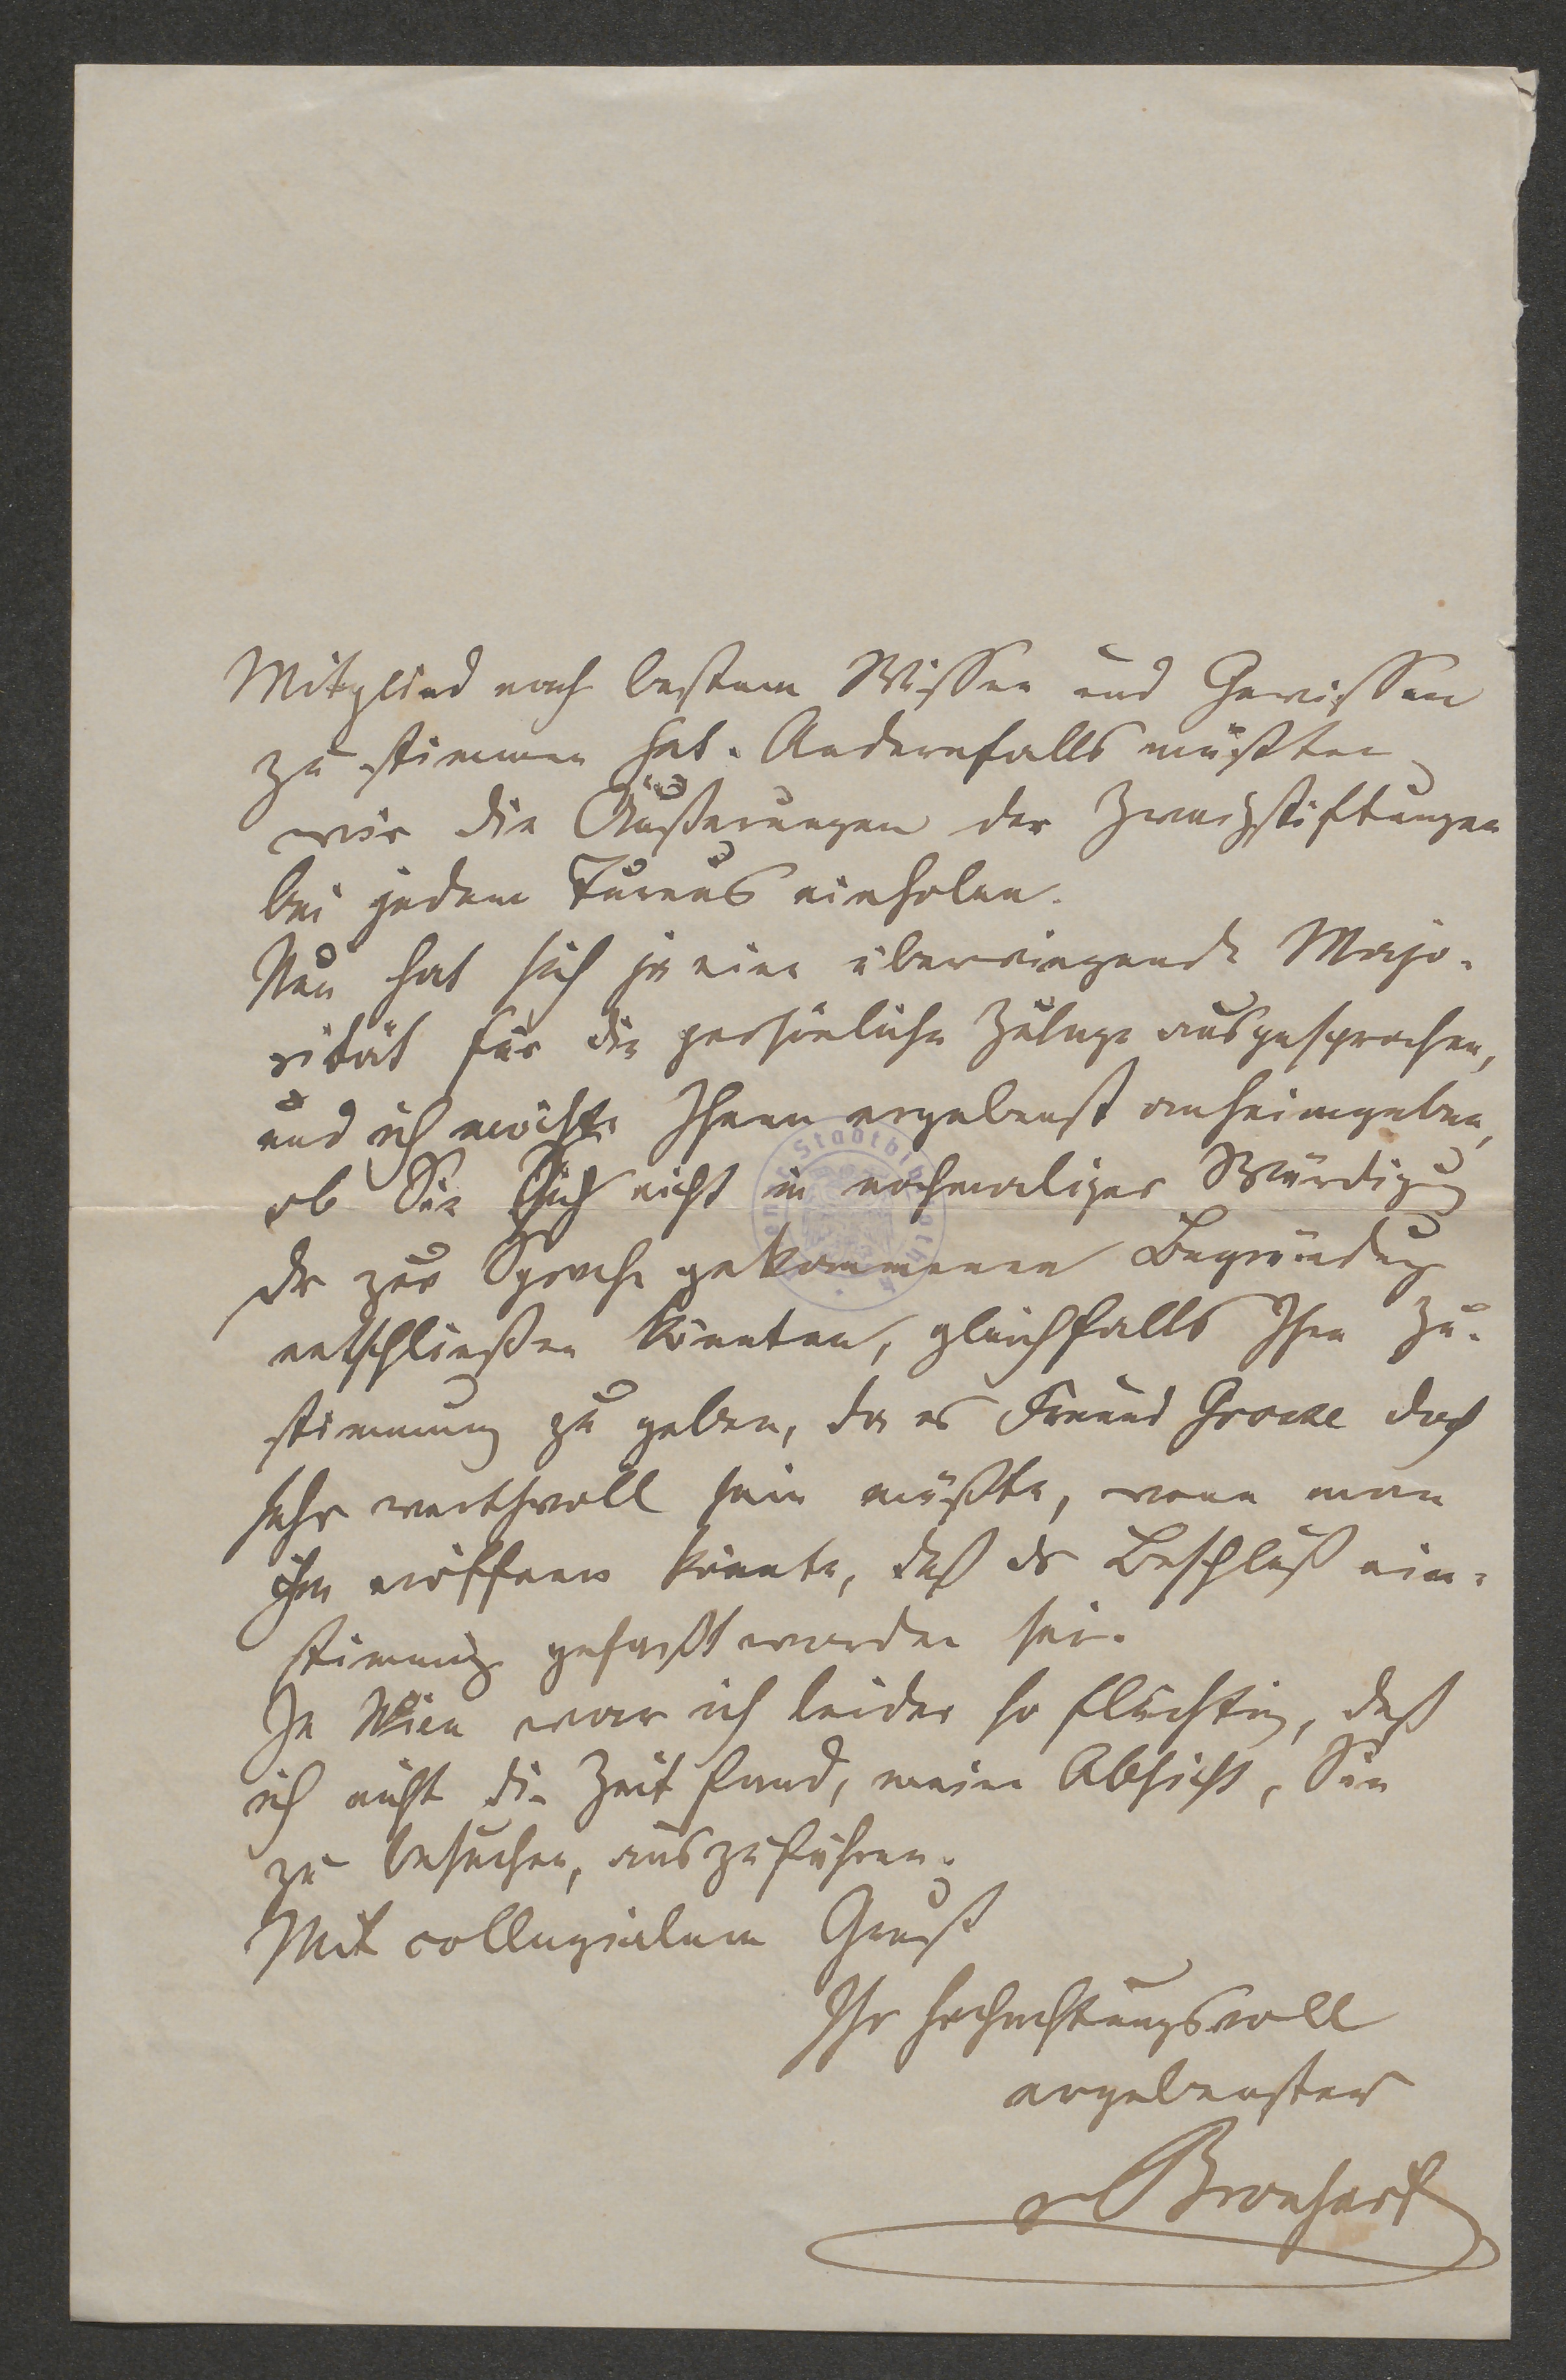 Mitglied nach bestem Wissen und Gewissen
zu stimmen hat. Andernfalls müßten
wir die Äußerungen der Zweigstiftungen
bei jedem Turnus einholen.
Nun hat sich ja eine überwiegende Majo-
rität für die persönliche Zulage ausgesprochen,
und ich möchte Ihnen ergebenst anheimgeben,
ob Sie Sich nicht in nochmaliger Würdigung
der zur Sprache gekommenen Begründung
entschließen könnten, gleichfalls Ihre Zu-
stimmung zu geben, da es Freund Grosse doch
sehr werthvoll sein müßte, wenn man
ihm eröffnen könnte, daß der Beschluß ein-
stimmig gefaßt worden sei.
In Wien war ich leider so flüchtig, daß
ich nicht die Zeit fand, meine Absicht, Sie
zu besuchen, auszuführen.
Mit collegialem Gruß
Ihr hochachtungsvoll
ergebenster
vBronsart